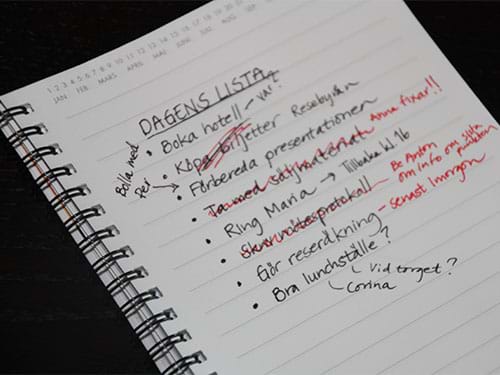 1 2 3 4 5 6 7 8 9 10 11 12 13 14 15 16 17 18 19 20 21 22
JAN FEB MARS APRIL MAJ JUNI JULI AUG SEP
DAGENS LISTA
• Boka hotell – var?
• Köpa biljetter Resebyrån
Bolla med
Per → • Förbereda presentationen
• Ta med säljmaterial Anna fixar!!
• Ring Maria → Tillbaka kl. 16
• Skriv mötesprotokoll Be Anton
om info om sista
punkten
• Gör reseräkning – senast imorgon
• Bra lunchställe?
Vid torget?
Corina